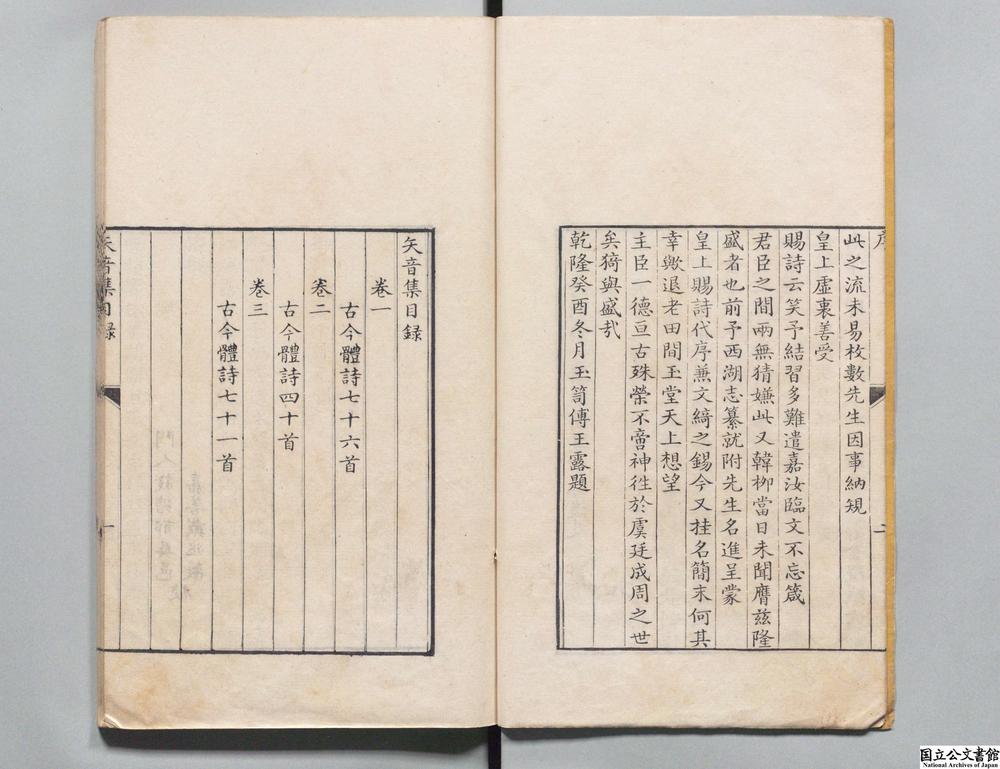 此之流未易枚數先生因事納規
皇上虛裏善受
賜詩云笑予結習多難遣嘉汝臨文不忘箴
君臣之間兩無猜嫌此又韓柳當日未聞膺茲隆
盛者也前予西湖志纂就附先生名進呈蒙
皇上賜詩代序兼文綺之錫今又挂名簡末何其
幸歟退老田間玉堂天上想望
主臣一德亘古殊榮不啻神徃於虞廷成周之世
矣猗與盛㢤
乾隆癸酉冬月玉笥傅王露題
二
矢音集目録
卷一
古今體詩七十六首
卷二
古今體詩四十首
卷三
古今體詩七十一首
矢音集目録
一
国立公文書館
National Archives of Japan